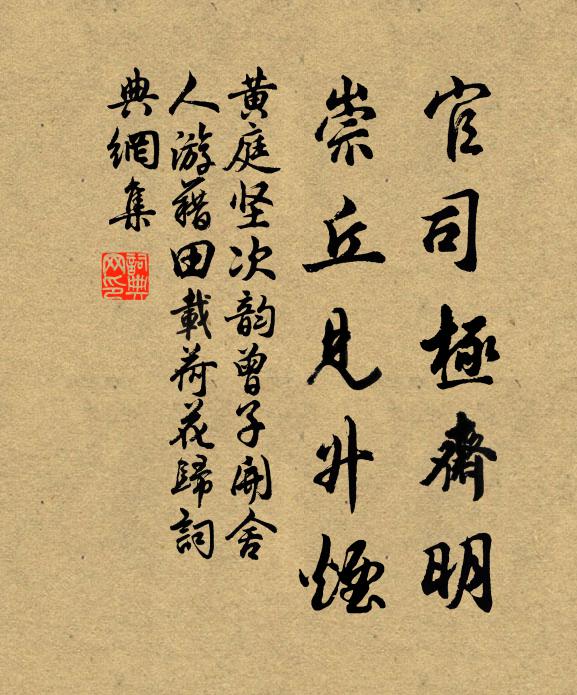 官司極齋明
崇丘見升煙
黄庭坚次韵曾子開舍
人游藉田載荷花歸詞
典網集
詞典
网印